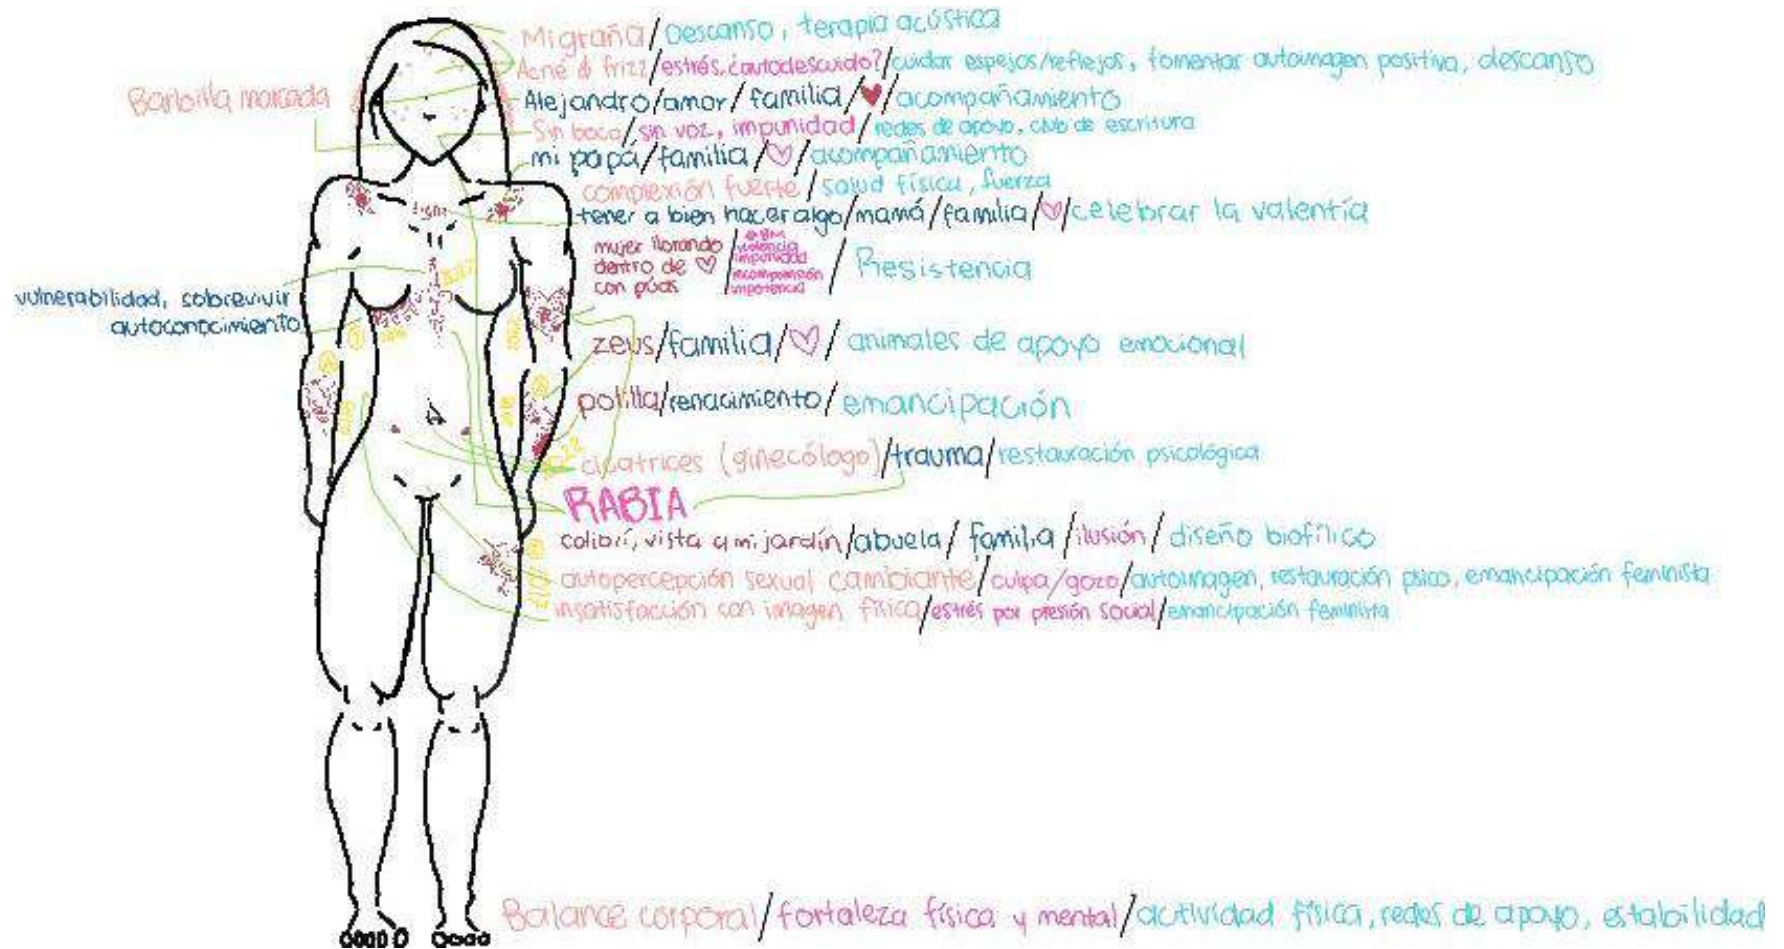 Migraña/Descanso, terapia acústica
Acné & frizz/estrés, ¿autodescuido?/cuidar espejos/reflejos, fomentar autoimagen positiva, descanso
Barbilla marcada
Alejandro/amor/familia/♥/acompañamiento
Sin boca/sin voz, impunidad/redes de apoyo, club de escritura
mi papá/familia/♡/acompañamiento
complexión fuerte/salud física, fuerza
tener a bien hacer algo/mamá/familia/♡/celebrar la valentía
mujer llorando
dentro de ♡
con púas
violencia
impunidad
incomprensión
impotencia
/Resistencia
vulnerabilidad, sobrevivir
autoconocimiento
zeus/familia/♡/animales de apoyo emocional
polilla/renacimiento/emancipación
cicatrices (ginecólogo)/trauma/restauración psicológica
RABIA
colibrí, vista a mi jardín/abuela/familia/ilusión/diseño biofílico
autopercepción sexual cambiante/culpa/gozo/autoimagen, restauración psico, emancipación feminista
insatisfacción con imagen física/estrés por presión social/emancipación feminista
Balance corporal/fortaleza física y mental/actividad física, redes de apoyo, estabilidad